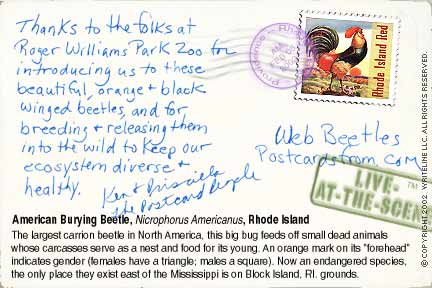 Thanks to the folks at
Roger Williams Park Zoo for
introducing us to these
beautiful, orange + black
winged beetles, and for
breeding + releasing them
into the wild to keep our
ecosystem diverse +
healthy.
Ken + Priscilla
The Postcard People
Providence
Rhode Island Red
Web Beetles
Postcardsfrom.com
LIVE-
AT-THE-SCEN
TM
American Burying Beetle, Nicrophorus Americanus, Rhode Island
The largest carrion beetle in North America, this big bug feeds off small dead animals
whose carcasses serve as a nest and food for its young. An orange mark on its "forehead"
indicates gender (females have a triangle; males a square). Now an endangered species,
the only place they exist east of the Mississippi is on Block Island, RI. grounds.
© COPYRIGHT 2002 WRITELINE LLC. ALL RIGHTS RESERVED.